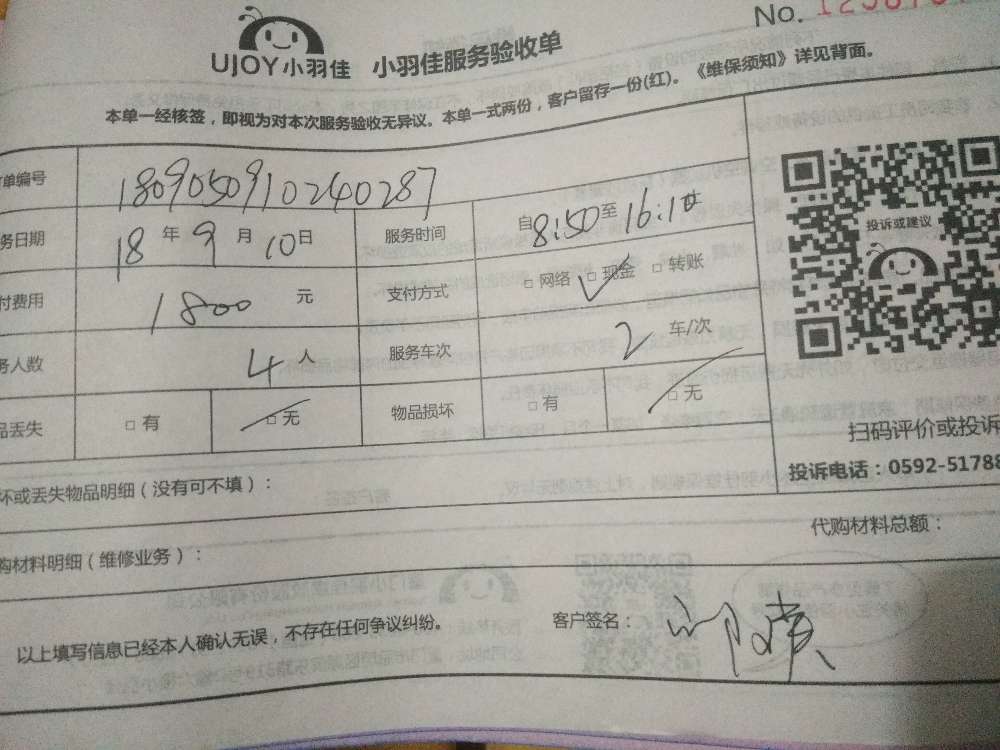 No.
UJOY小羽佳 小羽佳服务验收单
本单一经核签，即视为对本次服务验收无异议。本单一式两份，客户留存一份(红)。《维保须知》详见背面。
单编号 180905091024028​7
务日期 18 年 9 月 10 日 服务时间 自8:50至16:10
付费用 1800 元 支付方式 □ 网络 □ 现金 □ 转账
务人数 4 人 服务车次 2 车/次
品丢失 □ 有 □ 无 物品损坏 □ 有 □ 无
投诉或建议
扫码评价或投诉
投诉电话：0592-51788
坏或丢失物品明细（没有可不填）：
购材料明细（维修业务）： 代购材料总额：
以上填写信息已经本人确认无误，不存在任何争议纠纷。 客户签名：